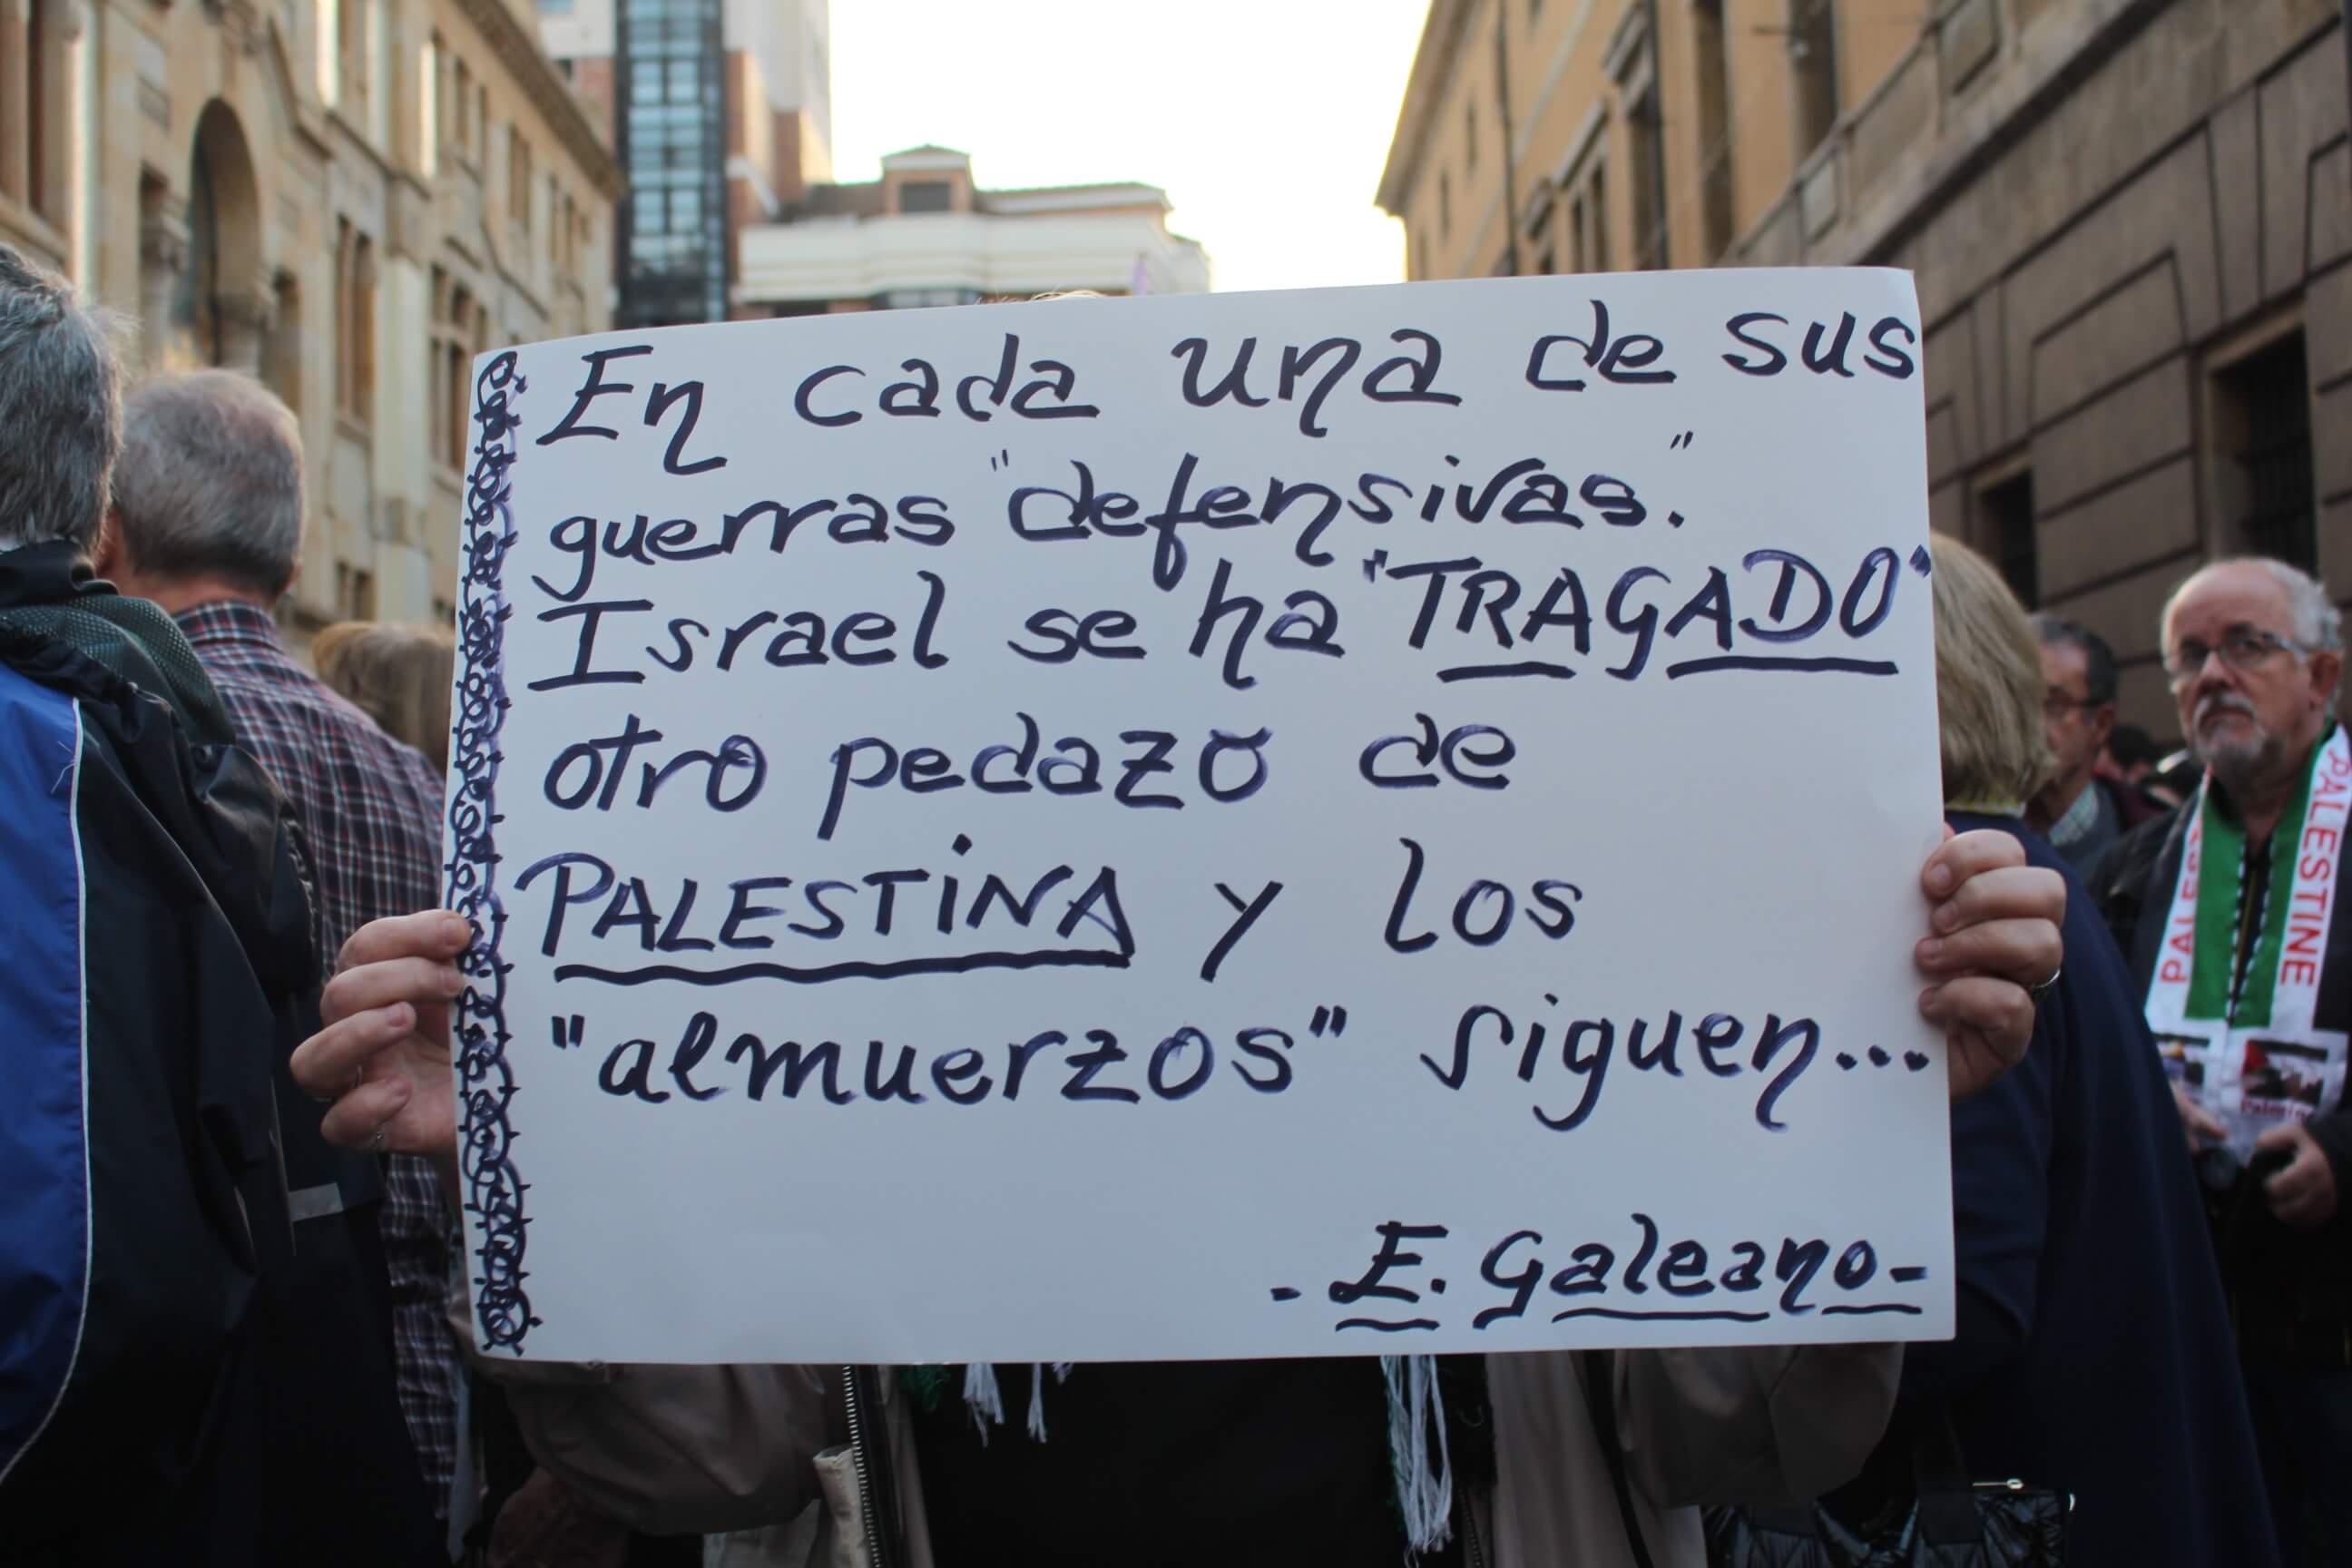 En cada una de sus
guerras "defensivas."
Israel se ha "TRAGADO"
otro pedazo de
PALESTiNA y los
"almuerzos" siguen...
- E. Galeano -
PALESTINE